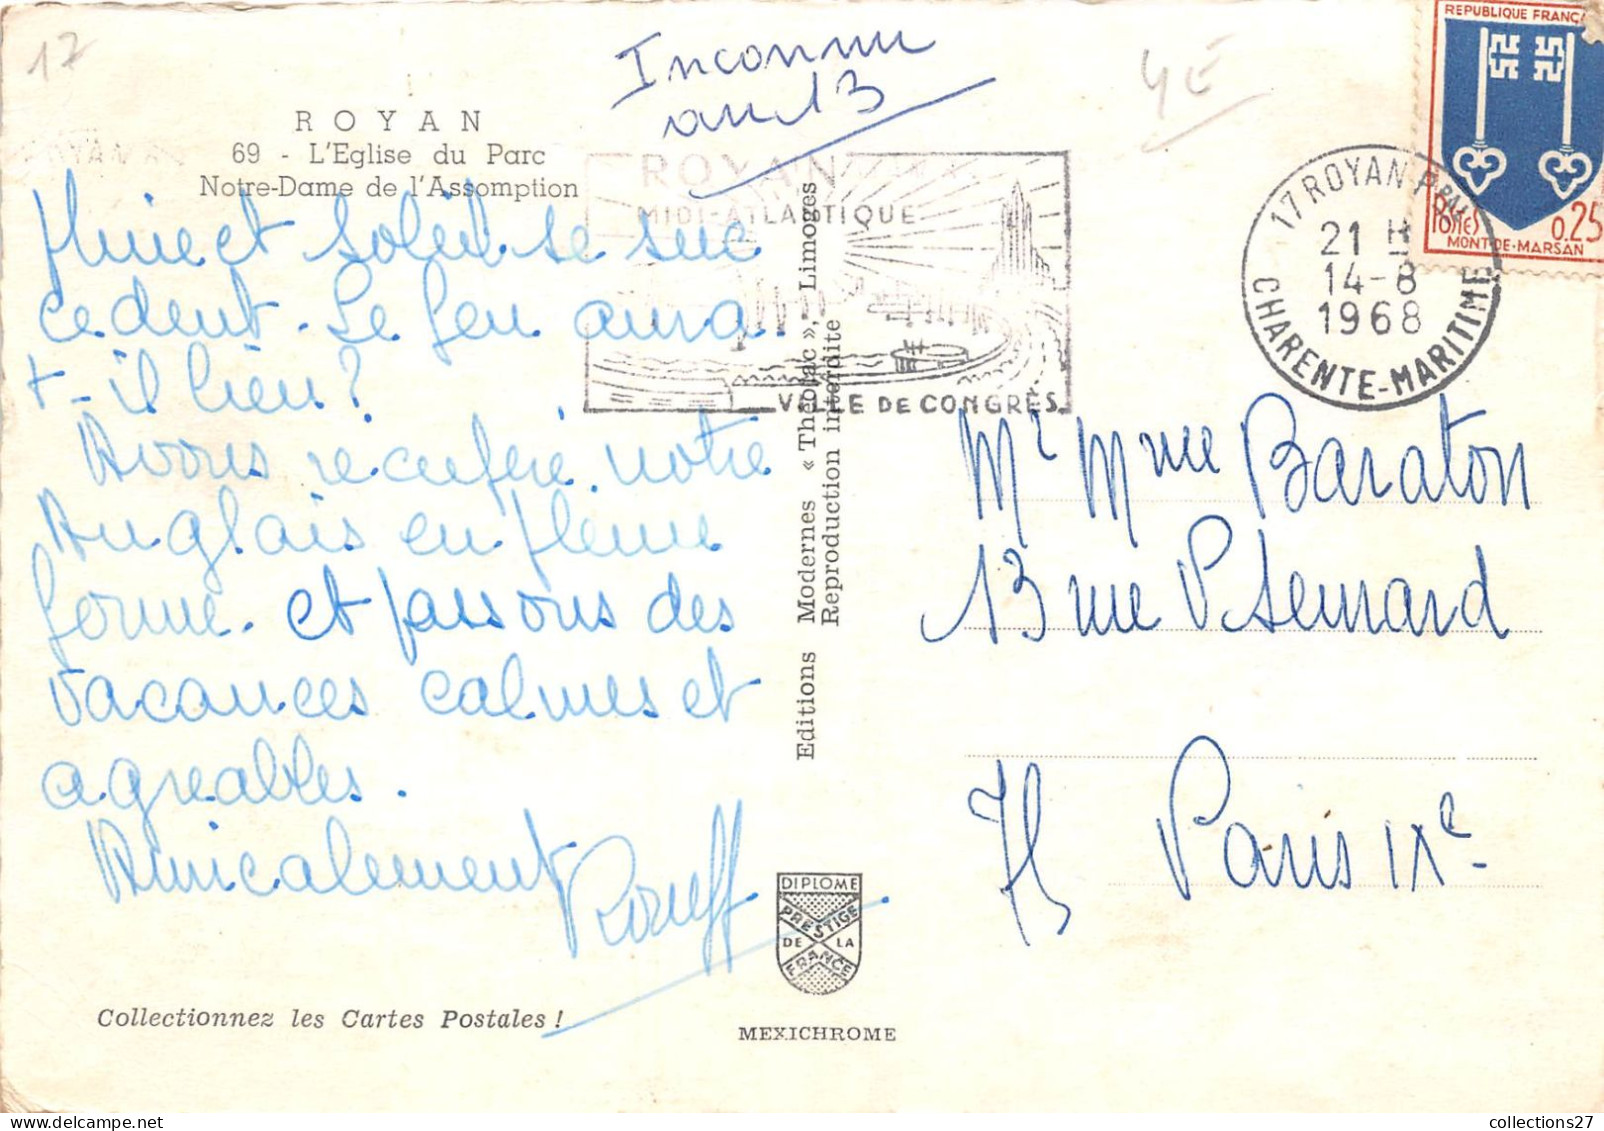 17
Inconnu
au 13
4E
ROYAN
69 - L'Eglise du Parc
Notre-Dame de l'Assomption
Pluie et soleil se suc
cedent. Le feu aura
t-il lieu?
Avons récupéré notre
Anglais en pleine
forme. et passons des
vacances calmes et
agreables.
Amicalement
Rouff
Collectionnez les Cartes Postales !
ROYAN
MIDI-ATLANTIQUE
VILLE DE CONGRÈS
Editions Modernes « Théojac », Limoges
Reproduction interdite
DIPLOME
PRESTIGE
DE LA
FRANCE
MEXICHROME
REPUBLIQUE FRANÇA
POSTES 0,25
MONT-DE-MARSAN
17 ROYAN PPAL
21 H
14-8
1968
CHARENTE-MARITIME
Mr Mme Baraton
13 rue P Semard
75 Paris IXe
collections27